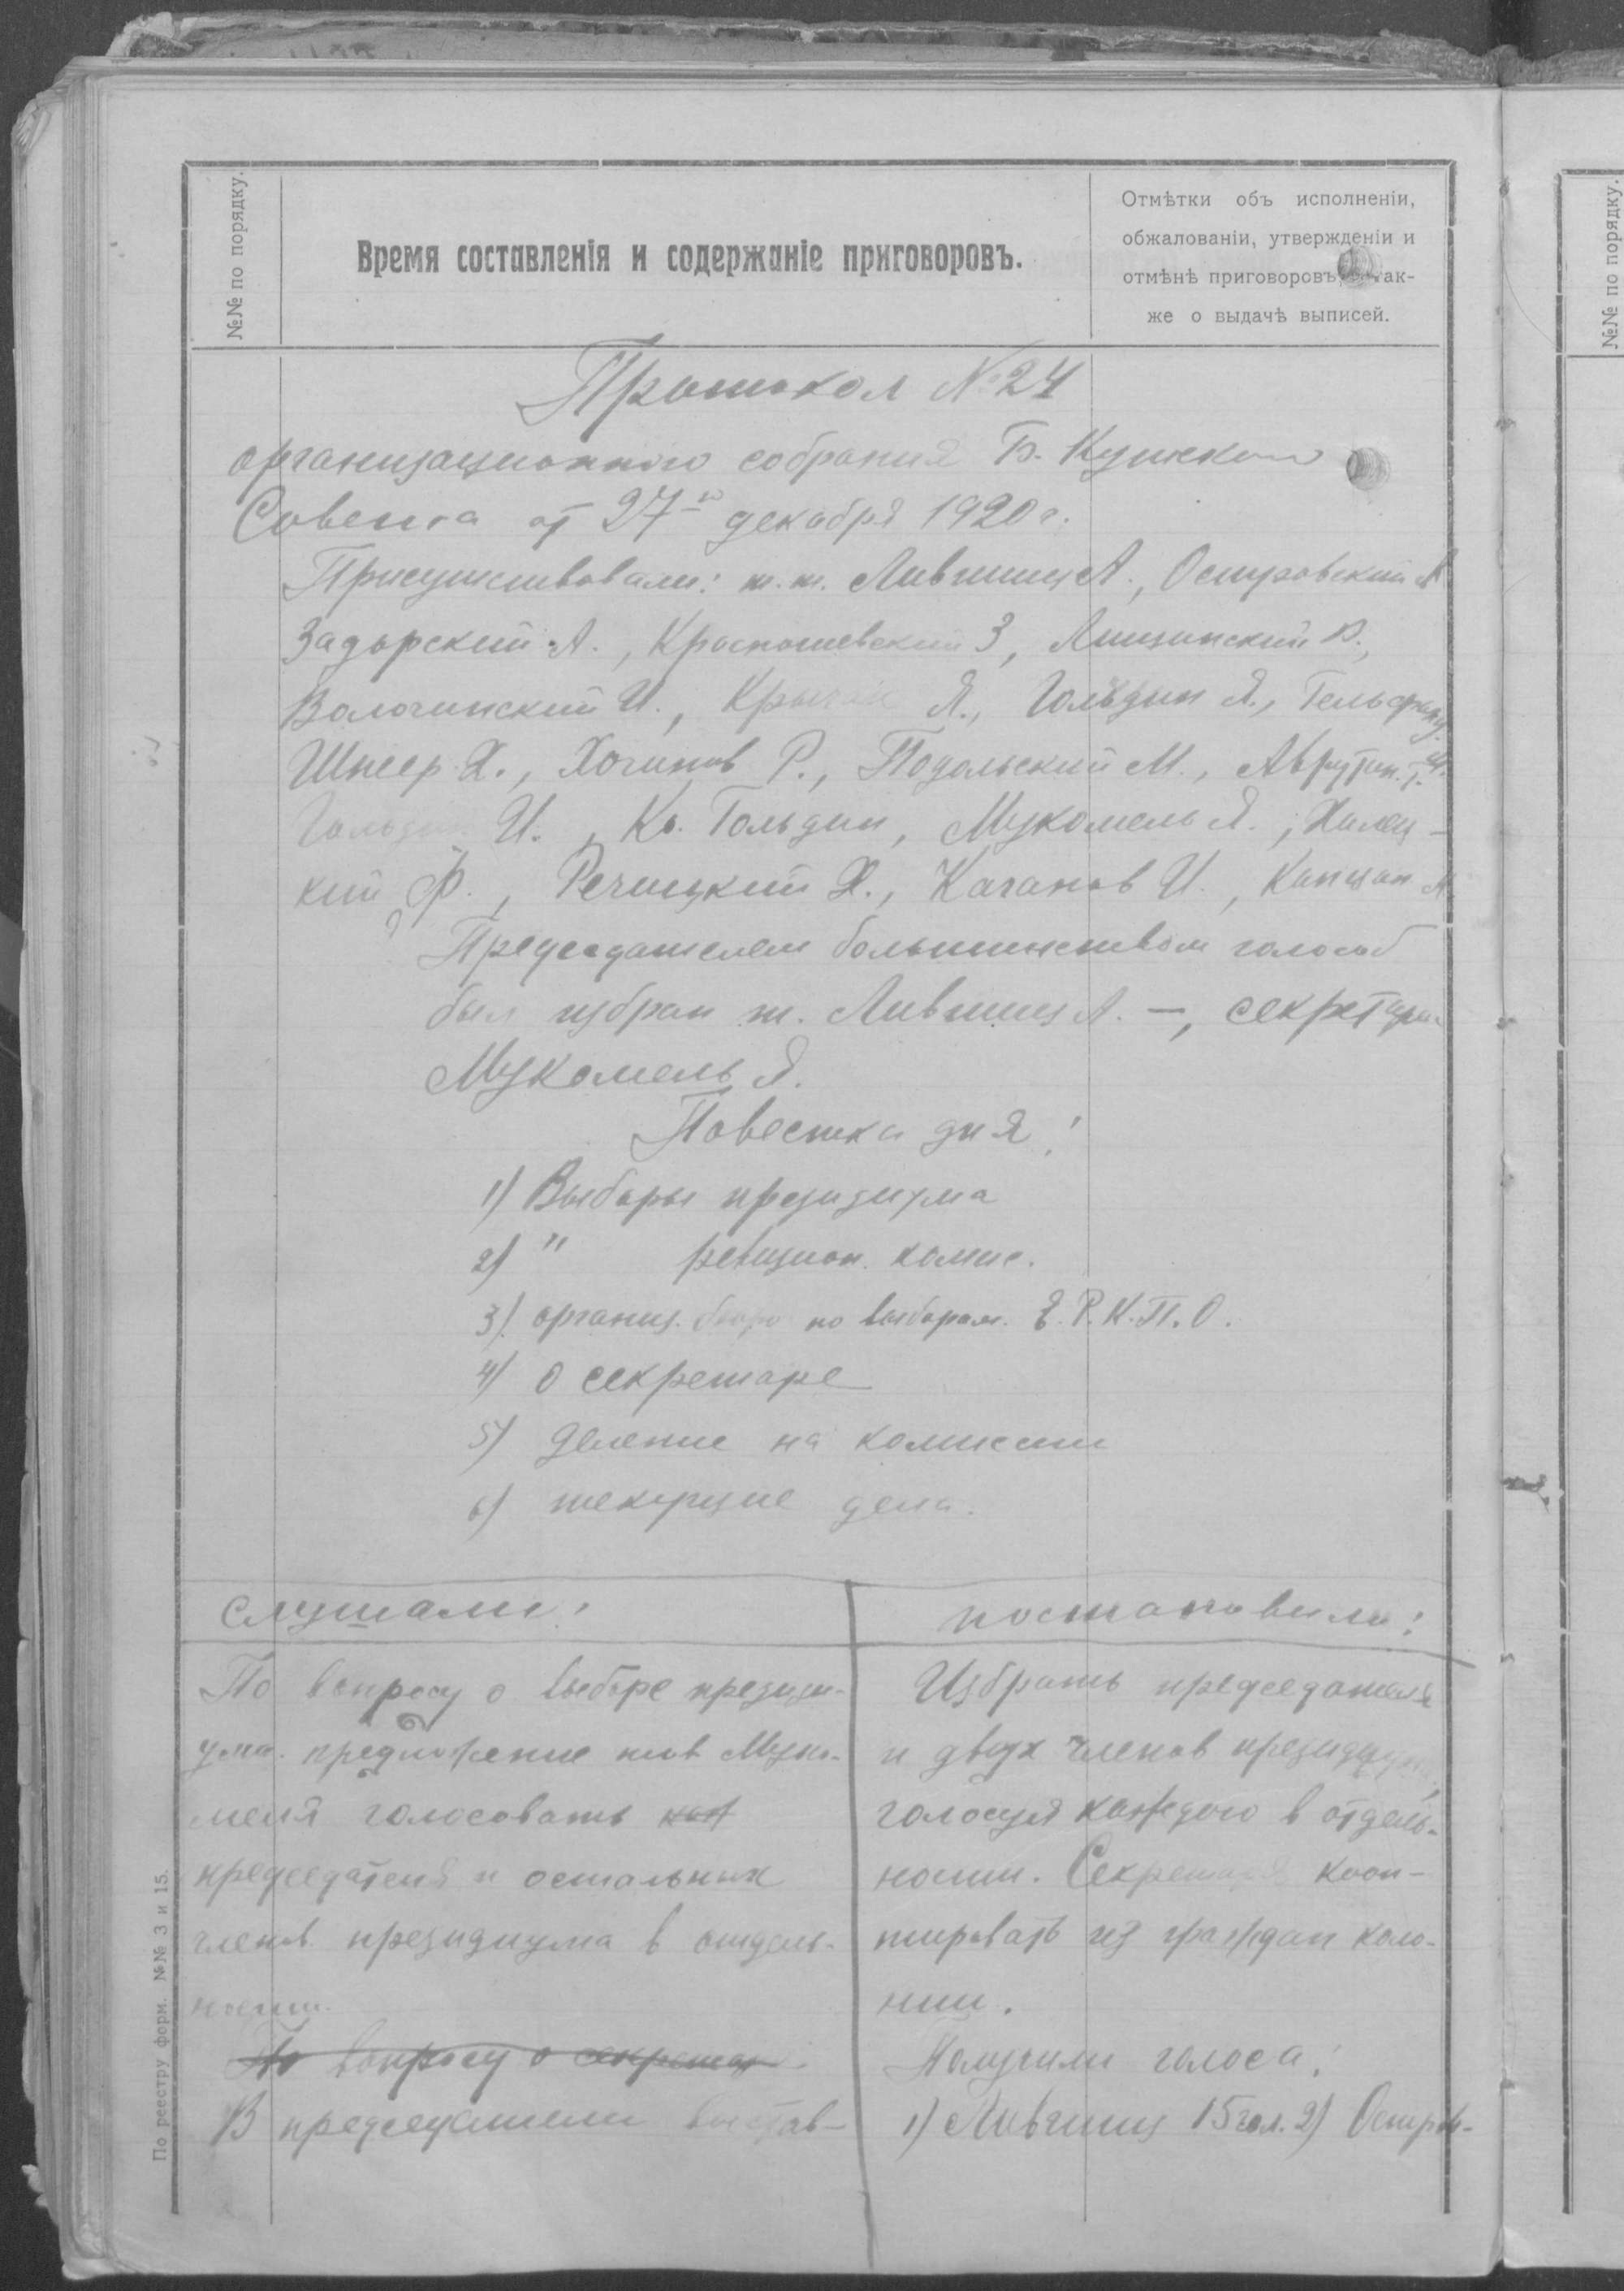 №№ по порядку.
Время составленія и содержаніе приговоровъ.
Отмѣтки объ исполненіи,
обжалованіи, утвержденіи и
отмѣнѣ приговоровъ, так-
же о выдачѣ выписей.
№№ по порядку.
Протокол №24
организационного собрания Б.
Совета от 27го декабря 1920 г.
Присутствовали: т.т. Лившиц А., Островский А
Задорский А., З, Лищинский В.,
Волочинский И., Я., Гольдин Я., Гельфанд
Шнеер Х., Хотинов Р., Подольский М., Аврутин. Г.
Гольдин И., Кл. Гольдин, Мукомель Я., Халец-
кий Ф., Речицкий Х., Каганов И., Капцан М.
Председателем большинством голосов
был избран т. Лившиц А. —, секретарем
Мукомель Я.
Повестка дня:
1) Выборы президиума
2) " ревизион. комис.
3) организ. бюро по выборам. Е.Р.К.П.О.
4) о секретаре
5) деление на комиссии
6) текущие дела.
Слушали:
По вопросу о выборе президи-
ума. предложение тов Муко-
меля голосовать
председателя и остальных
членов президиума в отдель-
ности.
По вопросу о секретар
В председатели выстав-
постановили:
Избрать председателя
и двух членов президиума,
голосуя каждого в отдель-
ности. Секретаря кооп-
тировать из граждан коло-
нии.
Получили голоса:
1) Лившиц 15 гол. 2) Остров-
По реестру форм. №№ 3 и 15.